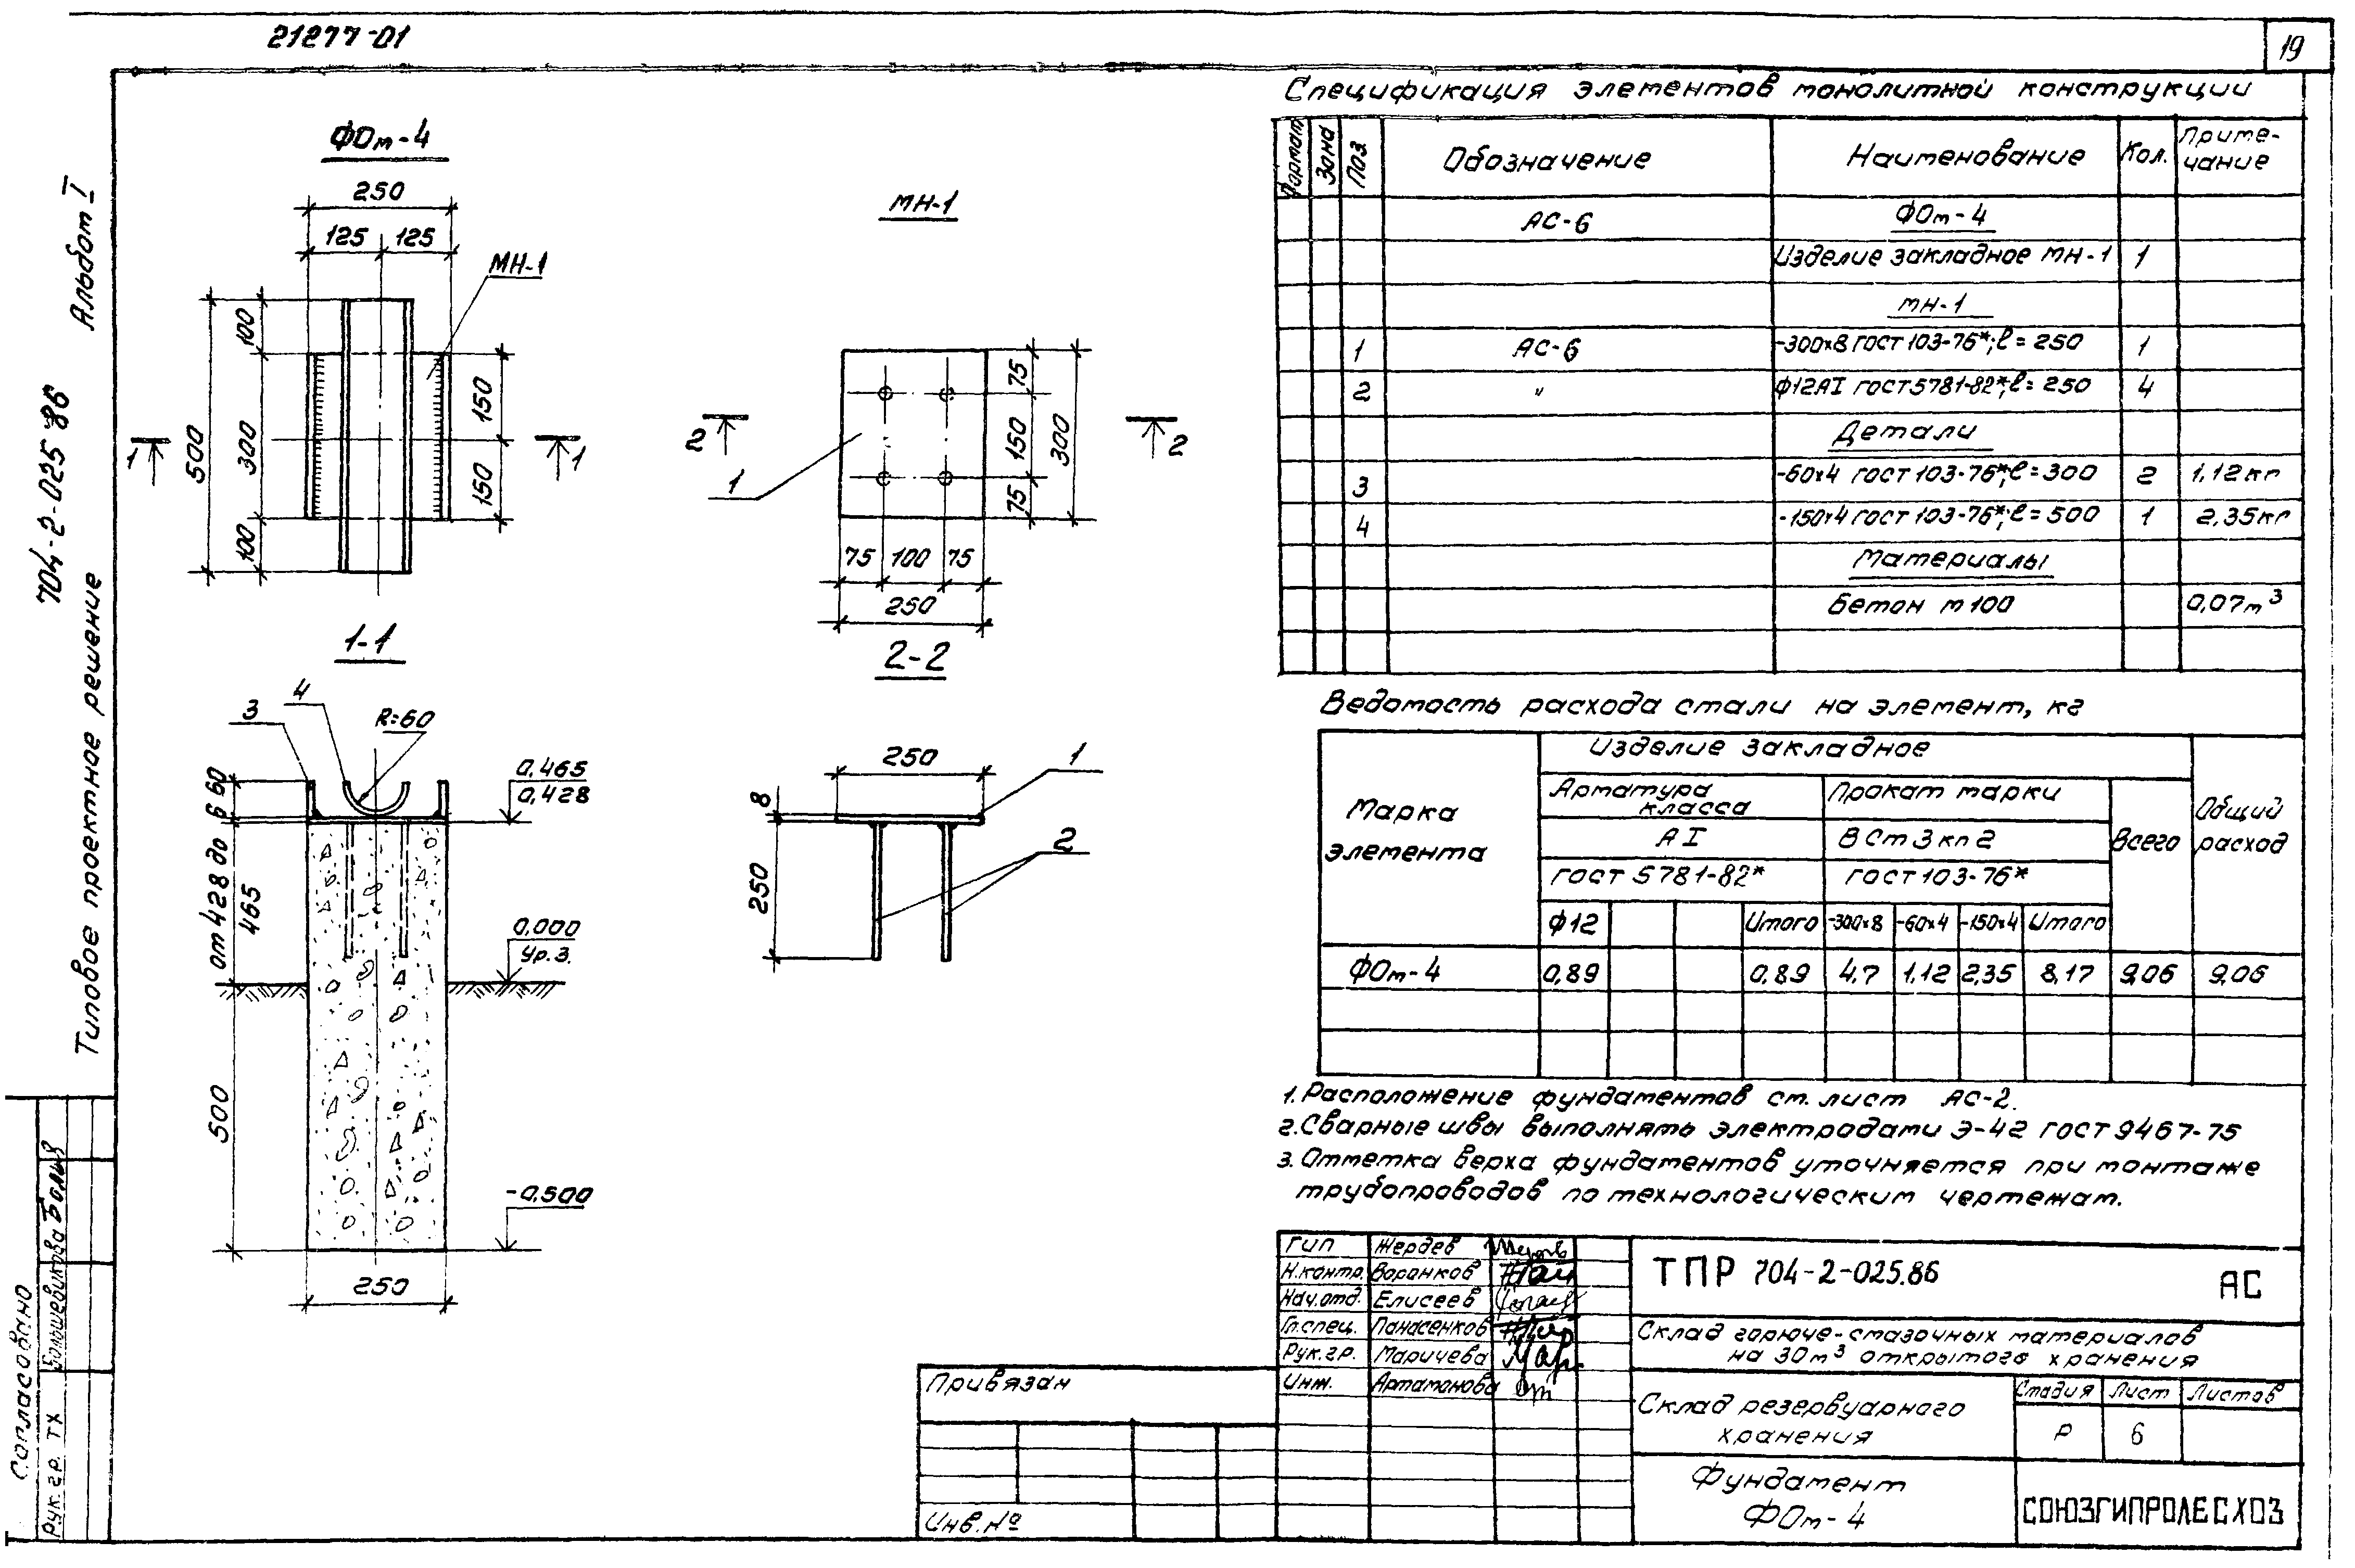 21277-01
19
Альбом I
704-2-025 86
Типовое проектное решение
ФОм-4
250
125 125
МН-1
100
300
100
500
150
150
1 1
МН-1
1
2 2
75
150
75
300
75 100 75
250
1-1
3
4
R=60
60
6
от 428 до
465
500
0,465
0,428
0,000
Ур.З.
-0,500
250
2-2
250
8
250
1
2
Спецификация элементов монолитной конструкции
Формат Зона Поз. Обозначение Наименование Кол. Приме-
чание
АС-6 ФОм-4
Изделие закладное МН-1 1
МН-1
1 АС-6 -300х8 ГОСТ 103-76*; ℓ=250 1
2 " ф12АI ГОСТ 5781-82*; ℓ=250 4
Детали
3 -60х4 ГОСТ 103-76*; ℓ=300 2 1,12кг
4 -150х4 ГОСТ 103-76*; ℓ=500 1 2,35кг
Материалы
Бетон м100 0,07м³
Ведомость расхода стали на элемент, кг
Марка
элемента
Изделие закладное
Арматура
класса
АI
ГОСТ 5781-82*
Прокат марки
ВСт3кп2
ГОСТ 103-76*
Всего
Общий
расход
ф12 Итого -300х8 -60х4 -150х4 Итого
ФОм-4 0,89 0,89 4,7 1,12 2,35 8,17 9,06 9,06
1. Расположение фундаментов см. лист АС-2.
2. Сварные швы выполнять электродами Э-42 ГОСТ 9467-75
3. Отметка верха фундаментов уточняется при монтаже
трубопроводов по технологическим чертежам.
ГИП Жердев
Н.контр. Воронков
Нач.отд. Елисеев
Гл.спец. Панасенков
Рук.гр. Маричева
Инж. Артамонова
ТПР 704-2-025.86
АС
Склад горюче-смазочных материалов
на 30м³ открытого хранения
Склад резервуарного
хранения
Стадия Лист Листов
Р 6
Фундамент
ФОм-4
СОЮЗГИПРОЛЕСХОЗ
Привязан
Инв.№
Согласовано
Рук.гр. ТХ Большевикова